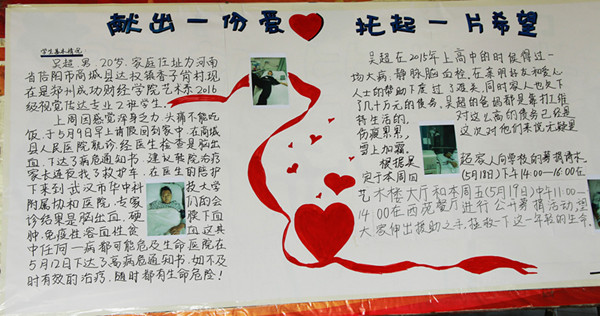 献出一份爱 托起一片希望
学生基本情况:
吴超,男,20岁,家庭住址为河南
省信阳市商城县达权镇香子岗村,现
在是郑州成功财经学院艺术系2016
级视觉传达专业2班学生。
上周因感觉浑身乏力,头痛不能吃
饭,于5月9日早上请假回到家中,在商城
县人民医院就诊,经医生检查是脑出
血,下达了病危通知书,建议转院治疗
家长连夜找了救护车,在医生的陪护
下来到武汉市华中科技大学
附属协和医院,专家们的会
诊结果是脑出血,硬膜下血
肿,免疫性溶血性贫血这其
中任何一病都可能危及生命,医院在
5月12日下达了高病危通知书,如不及
时有效的治疗,随时都有生命危险!
吴超在2015年上高中的时候得过一
场大病,静脉脑血栓,在亲朋好友和爱心
人士的帮助下度过了难关,同时家人也欠下
了几十万元的债务,吴超的爸妈都是靠打工维
持生活的,对这么高的债务已经是
伤痕累累,这次对他们来说无疑是
雪上加霜。
根据吴超家人向学校的募捐请求,
定于本周四(5月18日)下午14:00-16:00在
艺术楼大厅和本周五(5月19日)中午11:00—
14:00在西苑餐厅进行公开募捐活动,望
大家伸出援助之手,拯救一下这一年轻的生命。